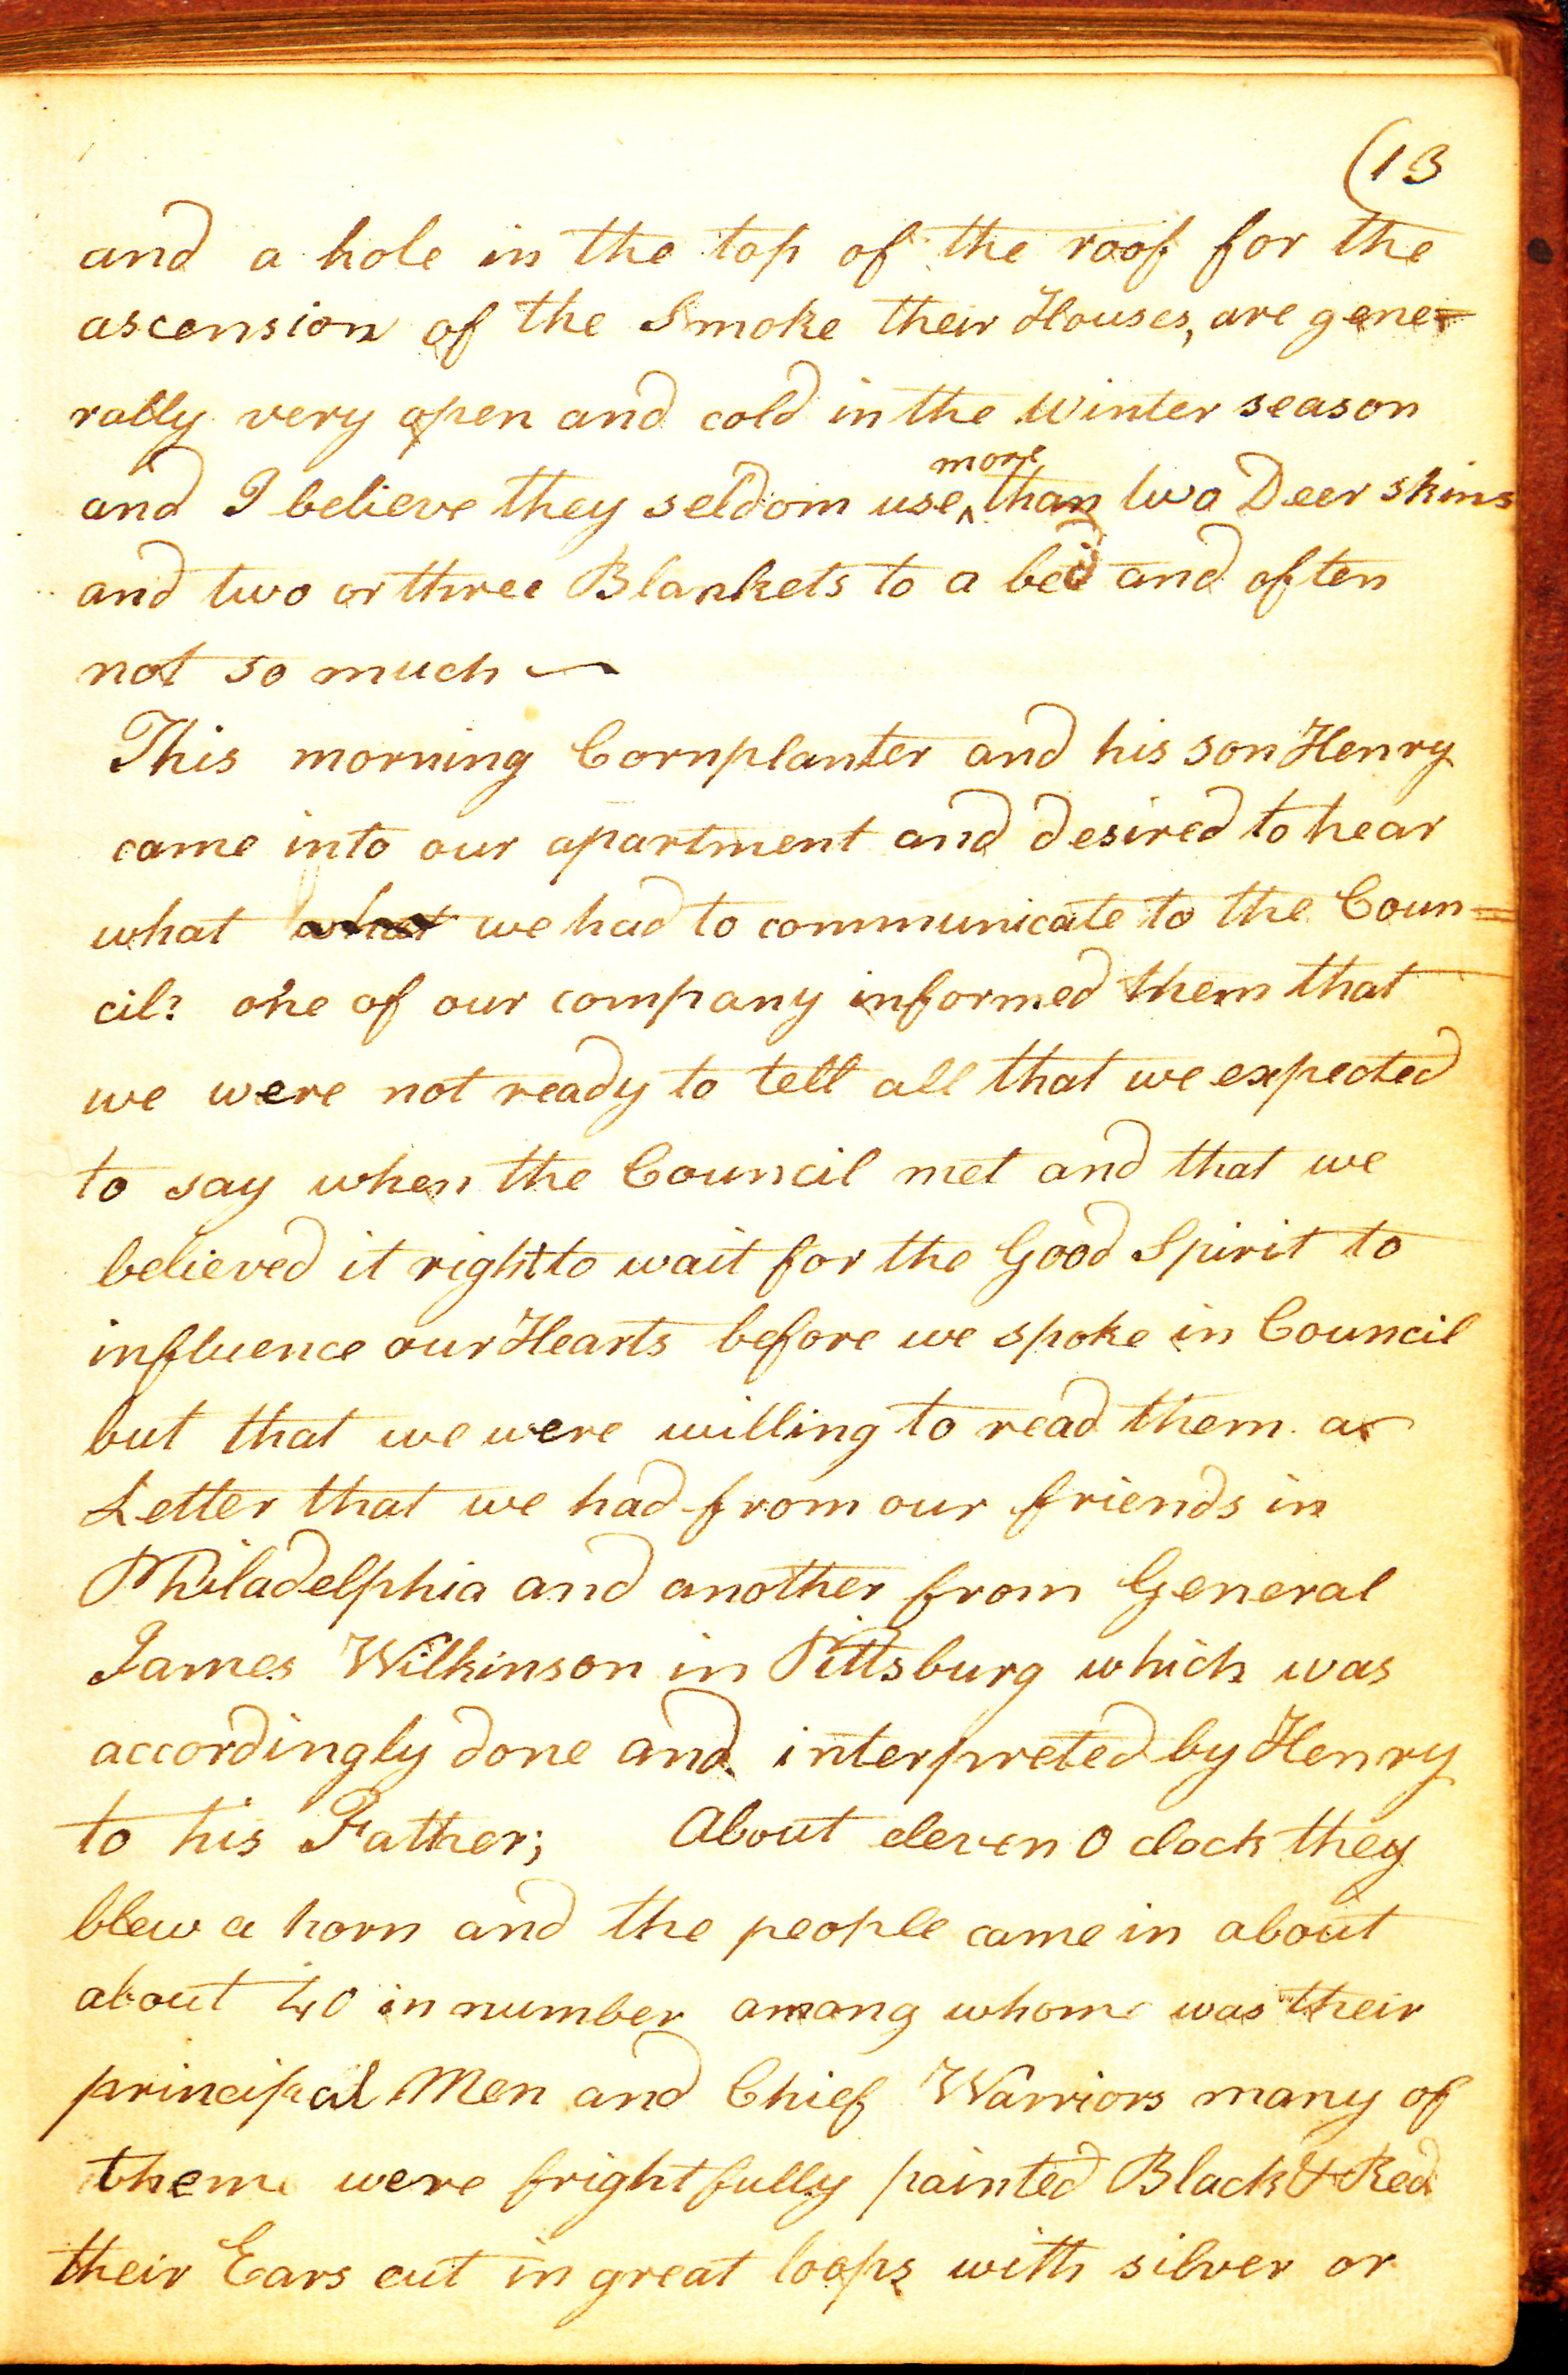 (13
and a hole in the top of the roof for the
ascension of the Smoke their Houses, are gene=
rally very open and cold in the winter season
and I believe they seldom use ^more than two Deer skins
and two or three Blankets to a bed and often
not so much —
This morning Cornplanter and his son Henry
came into our apartment and desired to hear
what what we had to communicate to the Coun=
cil? one of our company informed them that
we were not ready to tell all that we expected
to say when the Council met and that we
believed it right to wait for the Good Spirit to
influence our Hearts before we spoke in Council
but that we were willing to read them a
Letter that we had from our friends in
Philadelphia and another from General
James Wilkinson in Pittsburg which was
accordingly done and interpreted by Henry
to his Father; About eleven O clock they
blew a horn and the people came in about
about 40 in number among whom was their
principal Men and Chief Warriors many of
them were frightfully painted Black & Red
their Ears cut in great loops with silver or